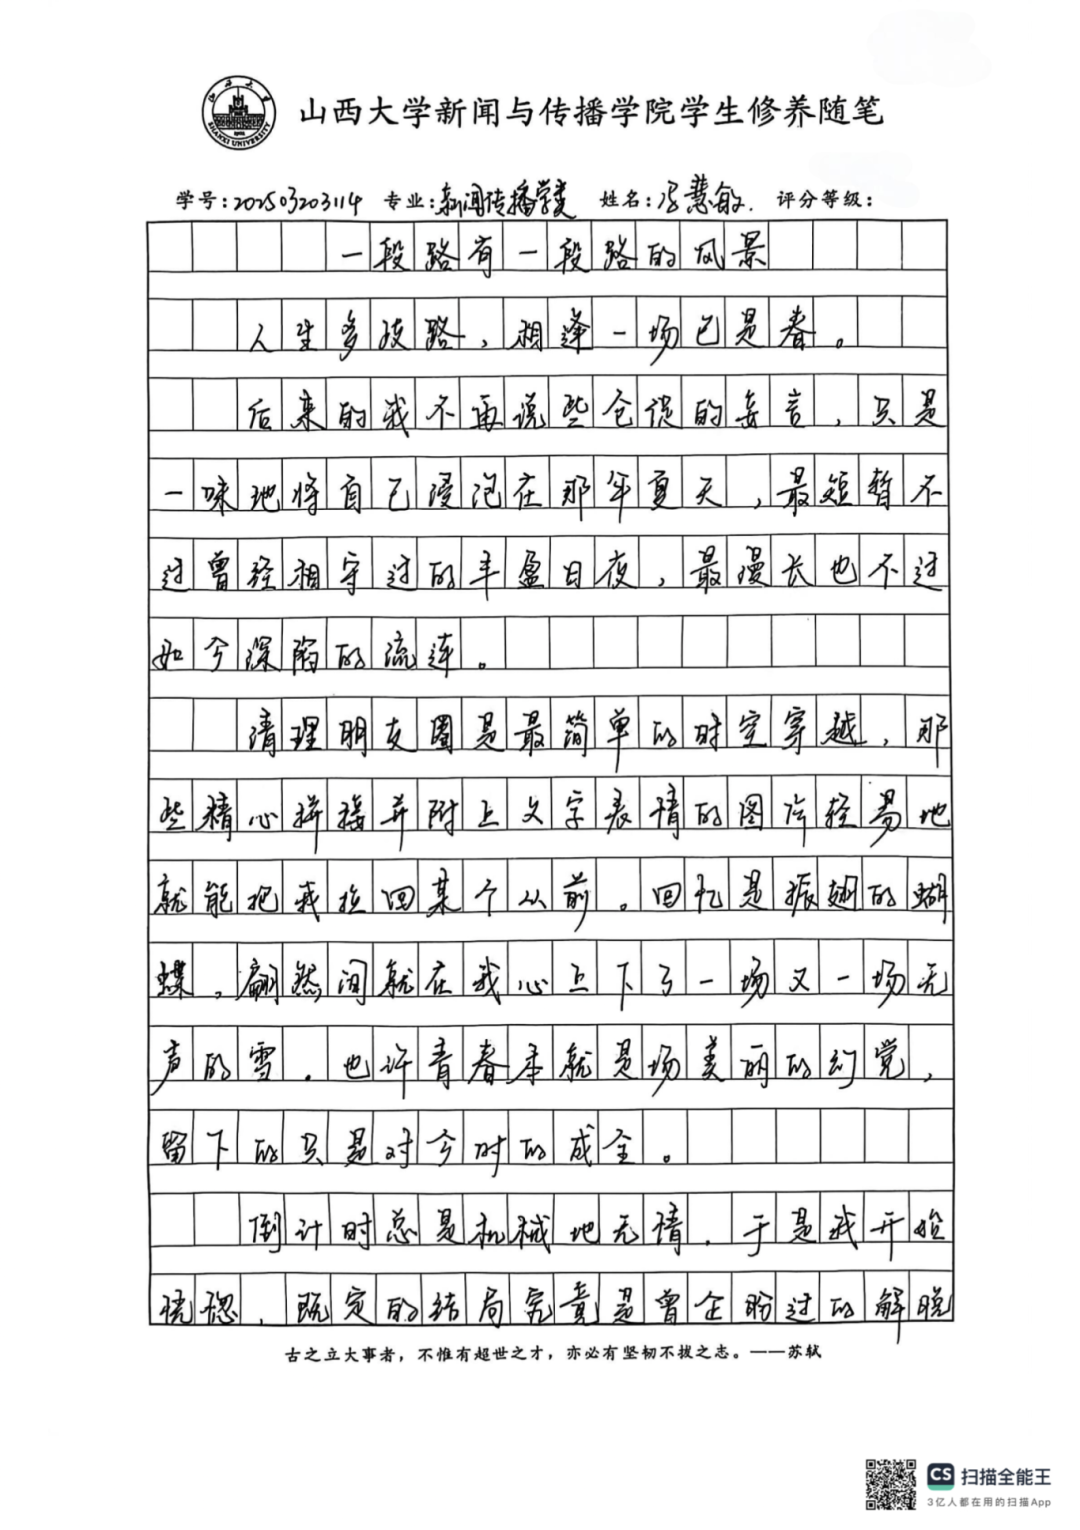 山西大学新闻与传播学院学生修养随笔
SHANXI UNIVERSITY
学号:202503203114 专业:新闻传播学类 姓名:冯慧敏. 评分等级:
一段路有一段路的风景
人生多歧路,相逢一场已是春。
后来的我不再说些仓促的妄言,只是
一味地将自己浸泡在那年夏天,最短暂不
过曾经相守过的丰盈日夜,最漫长也不过
如今深陷的流连。
清理朋友圈是最简单的时空穿越,那
些精心拼接并附上文字表情的图片轻易地
就能把我拉回某个从前。回忆是振翅的蝴
蝶,翩然间就在我心上下了一场又一场无
声的雪.也许青春本就是场美丽的幻觉,
留下的只是对今时的成全。
倒计时总是机械地无情.于是我开始
恍惚,既定的结局究竟是曾企盼过的解脱
古之立大事者,不惟有超世之才,亦必有坚韧不拔之志。——苏轼
CS 扫描全能王
3亿人都在用的扫描App